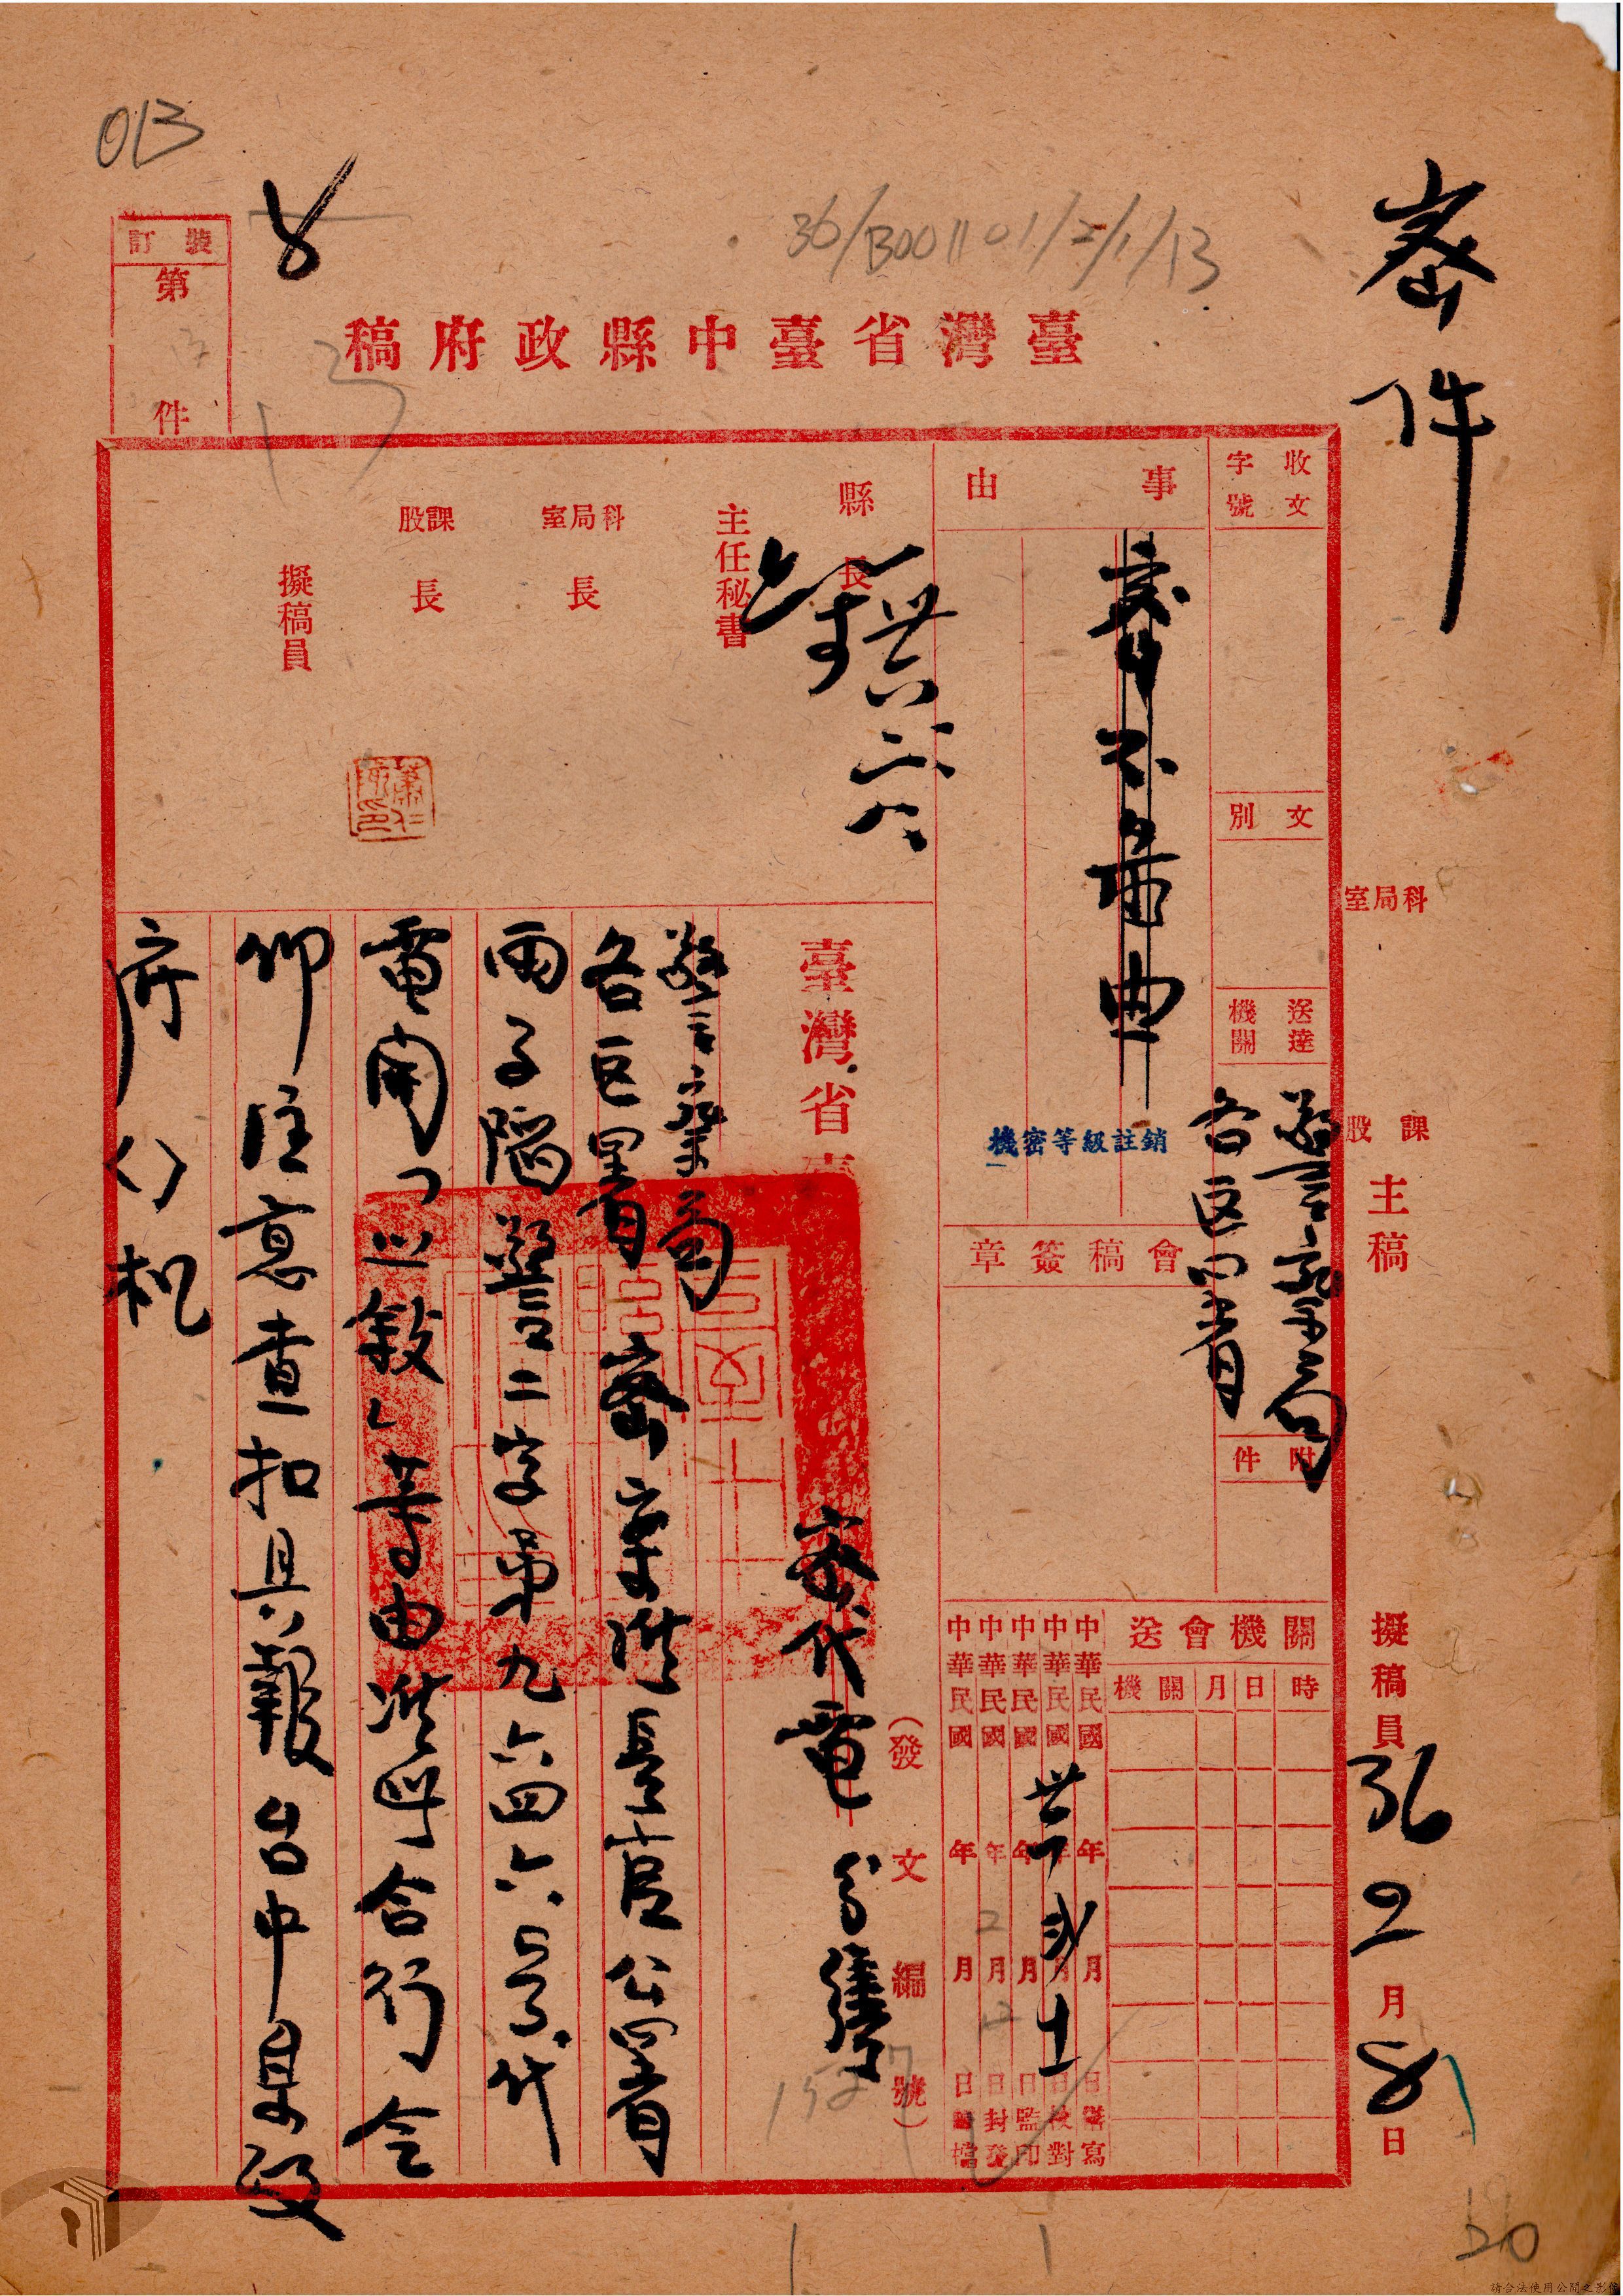 013
36/B001101/2/1/13
密件
裝訂
第
件
臺灣省臺中縣政府稿
收文
字號
文別
送達機關
警察局
各區署
附件
事由
密不录由
機密等級註銷
會稿簽章
關機會送
時日月關機
中華民國卅六年貳月十二日繕寫
中華民國 年 月 日校對
中華民國 年 月 日監印
中華民國 年2月12日封發
中華民國 年 月 日歸檔
縣長
卅六 二 八
主任秘書
科局室長
課股長
擬稿員
臺灣省
密代電
(發文編號)
1527
警察局
各區署 密案准長官公署
丙子陷警二字第九六四六六号代
電開「巡敍」等由准此合行令
仰注意查扣具報台中县政
府(　)机
科局室
課股
主稿
擬稿員
36 2月8日
20
請合法使用公開之影像